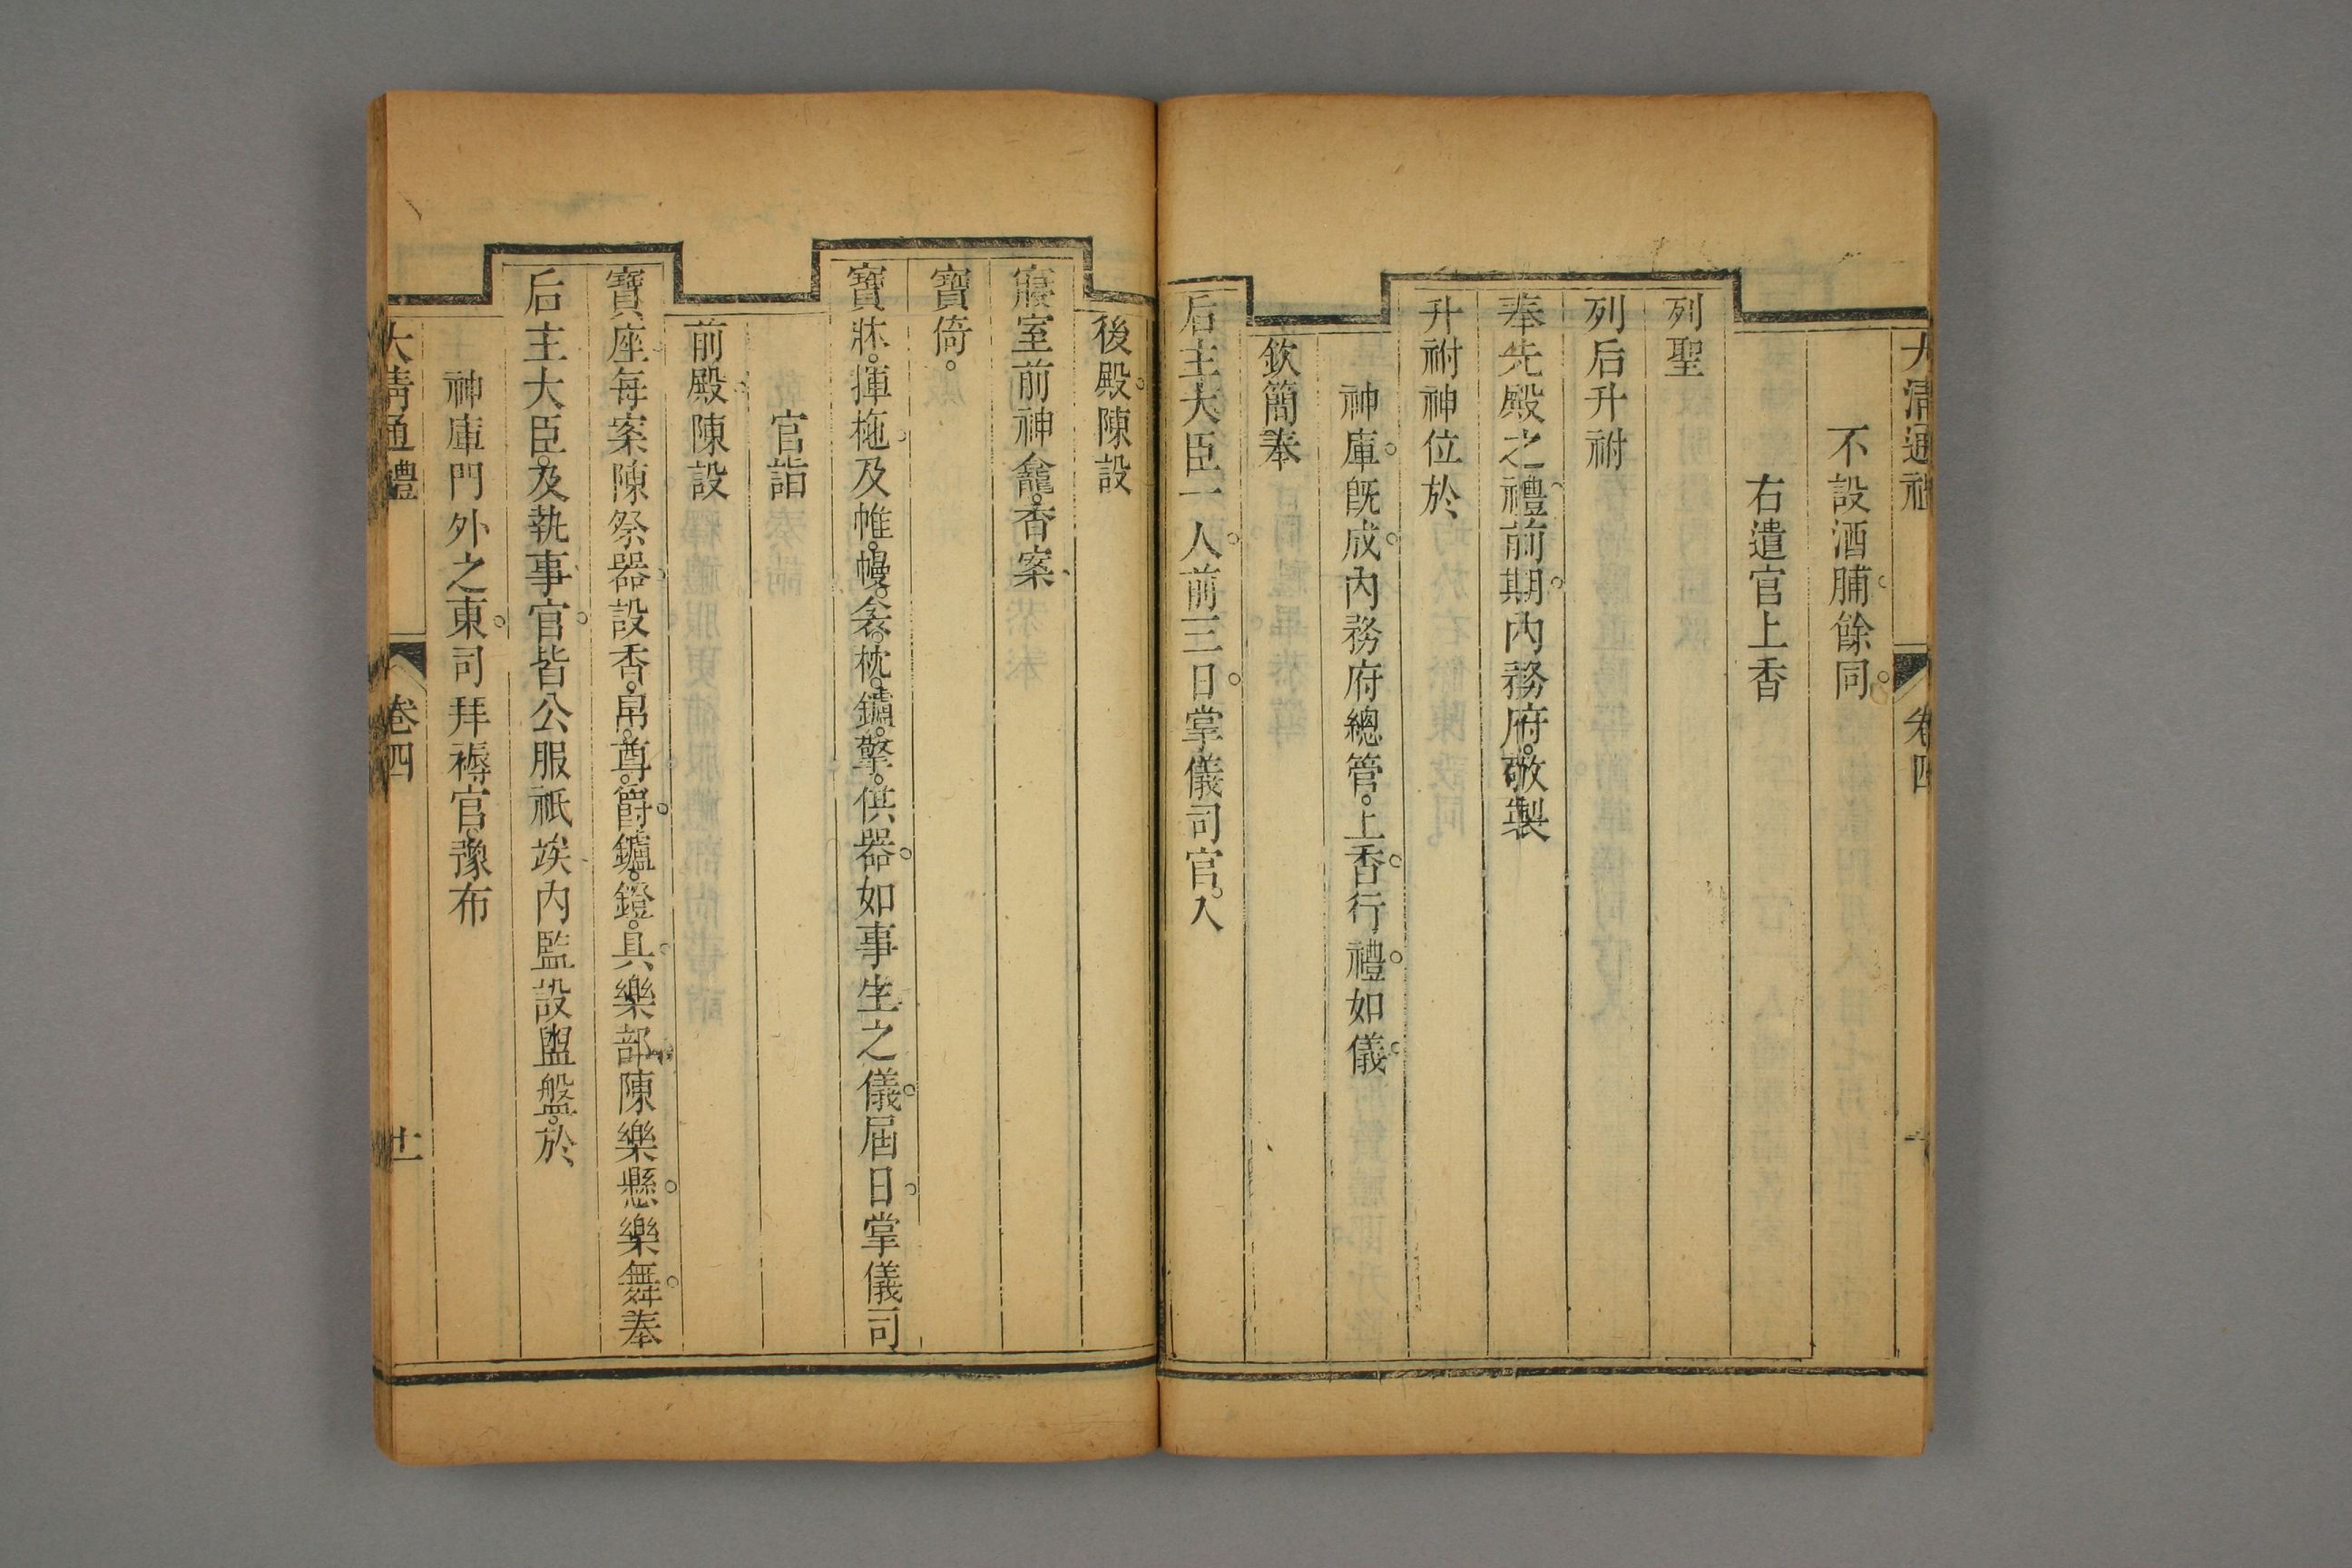 大清通禮 卷四
不設酒脯。餘同。
右遣官上香
列聖
列后升祔
奉先殿之禮。前期。內務府。敬製
升祔神位於
神庫。旣成。內務府總管。上香。行禮。如儀。
欽簡奉
后主大臣一人。前三日。掌儀司官。入
後殿。陳設
寢室前神龕。香案。
寶倚。
寶牀。揮椸。及帷。幔。衾。枕。鑪。檠。供器。如事生之儀。屆日。掌儀司
官詣
前殿。陳設
寶座。每案陳祭器。設香。帛。尊。爵。鑪。鐙。具。樂部陳樂懸。樂舞。奉
后主大臣。及執事官。皆公服祇竢。內監設盥盤。於
神庫門外之東。司拜褥官。豫布
大清通禮 卷四 十一